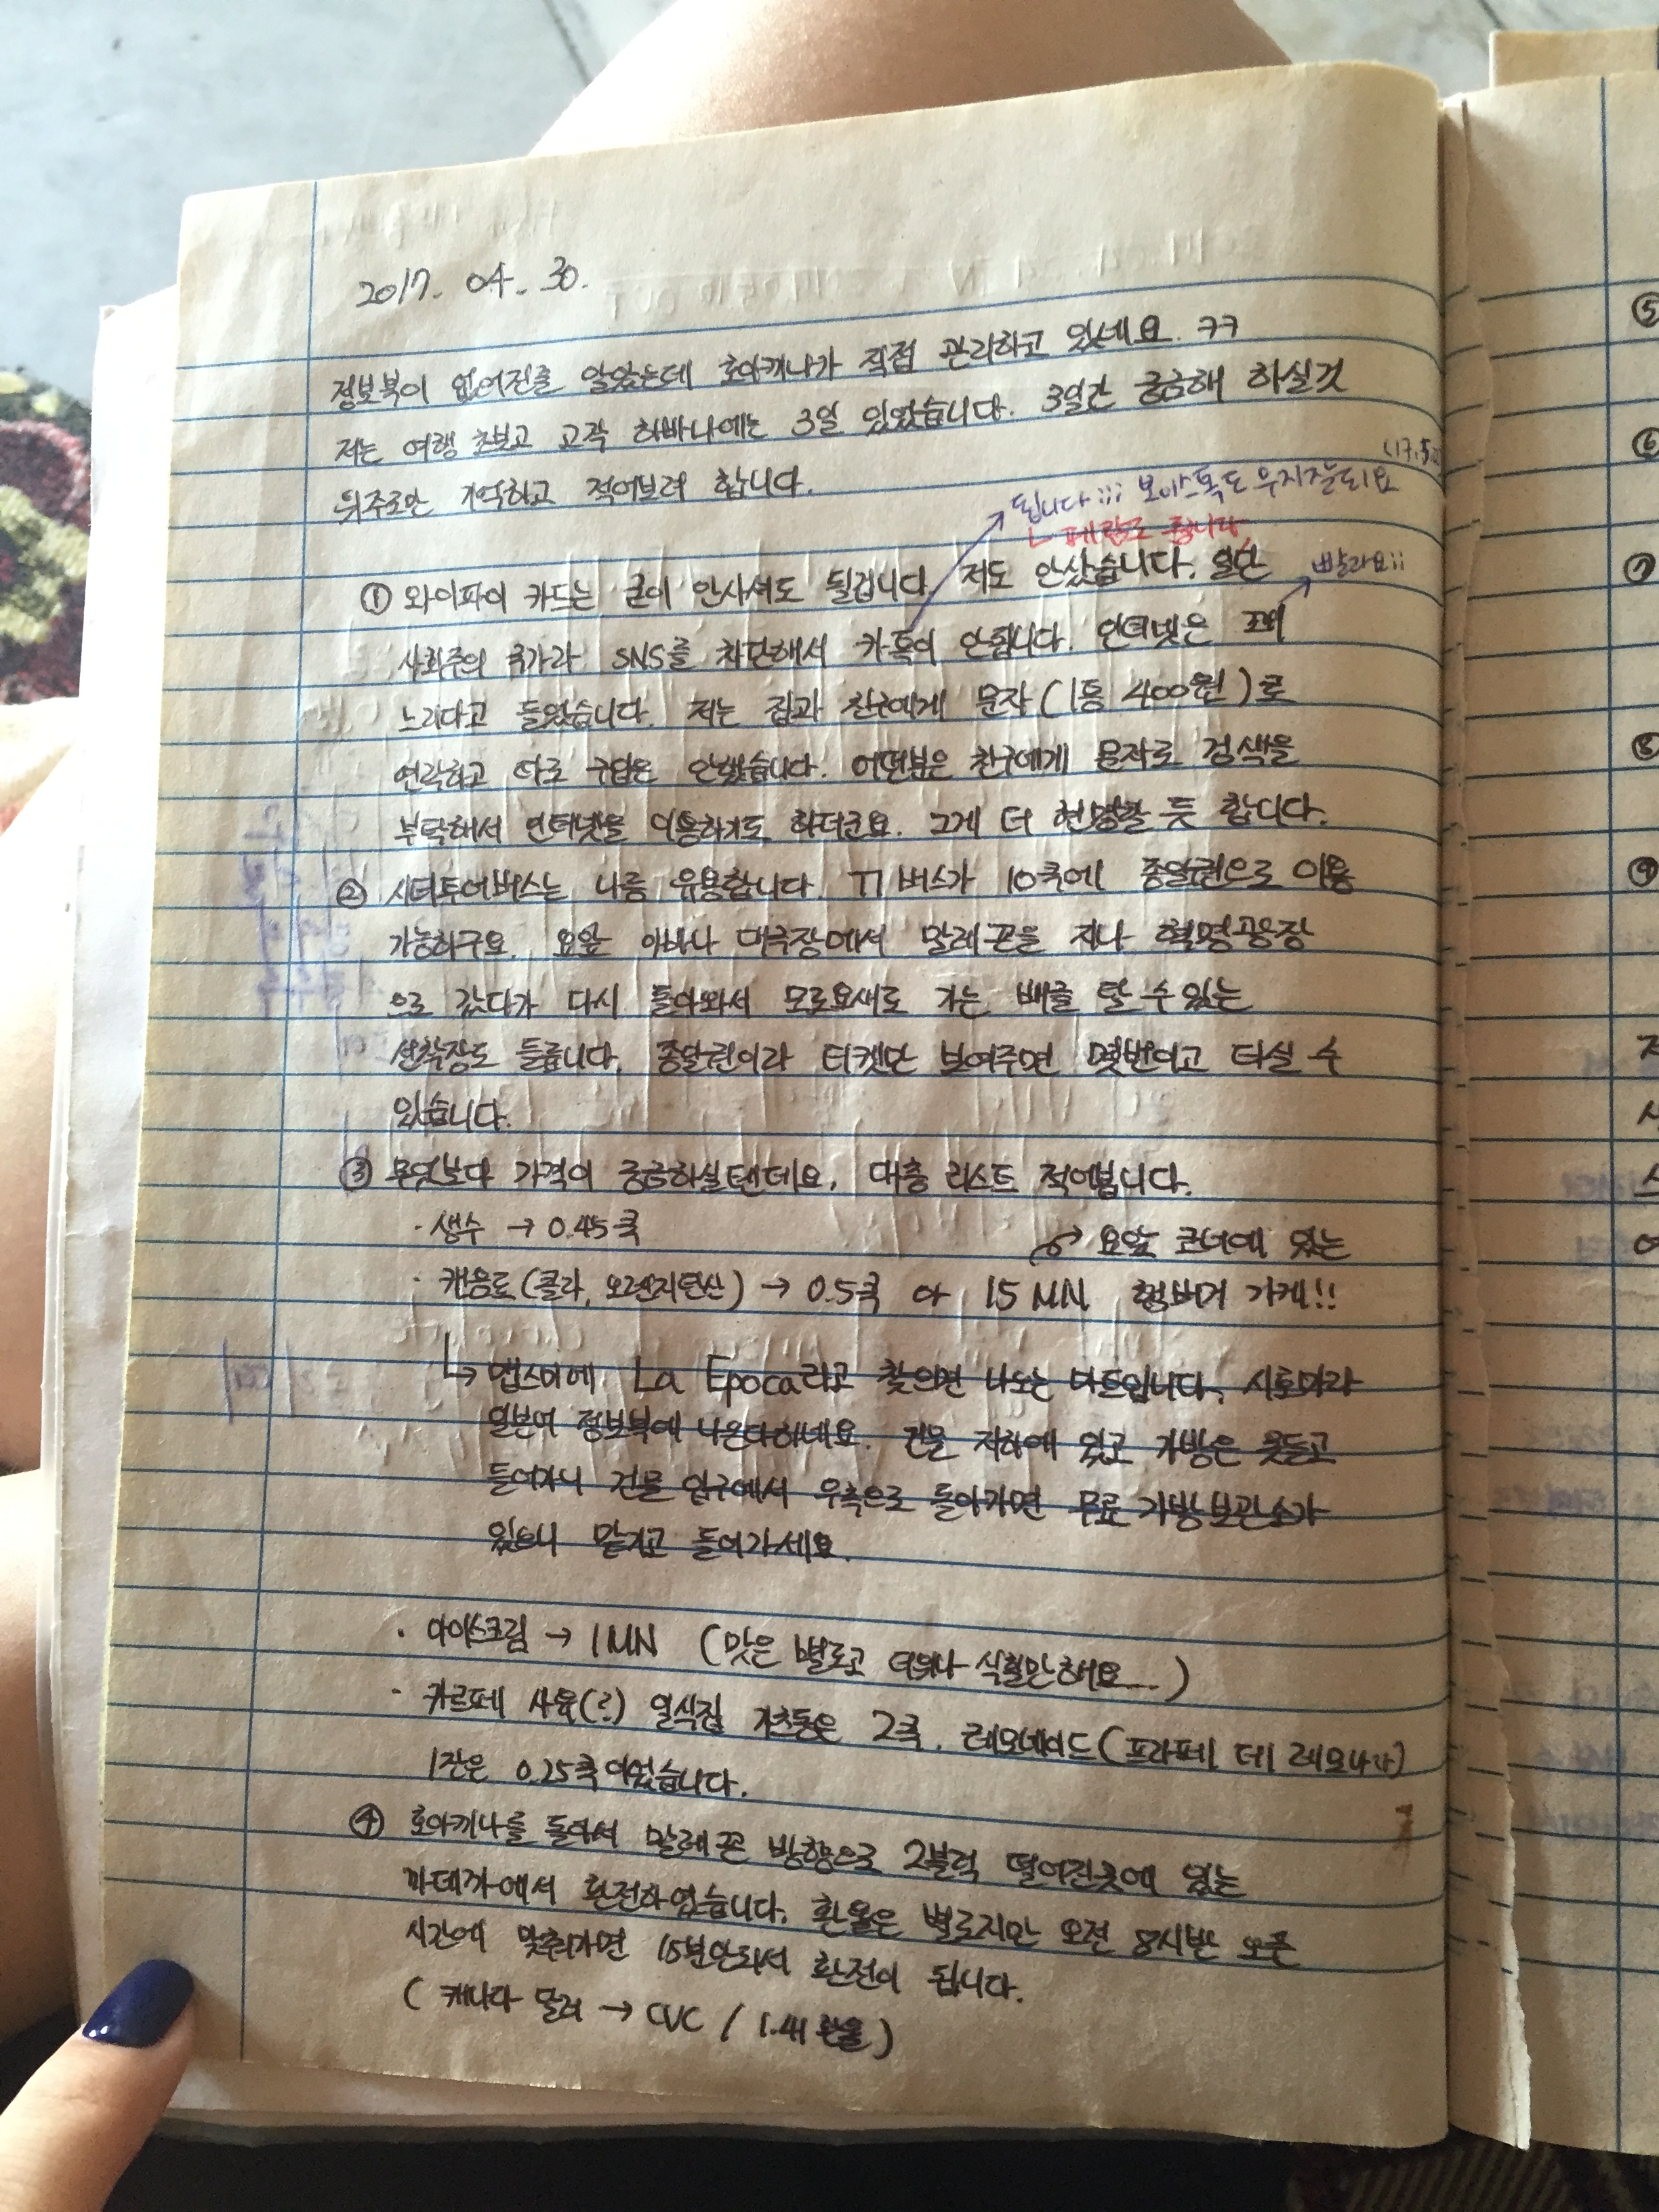 2017. 04. 30.
정보북이 없어진줄 알았는데 호아끼나가 직접 관리하고 있네요. ㅋㅋ
저는 여행 초보고 고작 하바나에는 3일 있었습니다. 3일간 궁금해 하실것
위주로만 기억하고 적어보려 합니다.
(17.5.
됩니다;;; 보이스톡도 무지잘되요
ㄴ 페탐도 됩니다
① 와이파이 카드는 굳이 안사셔도 될겁니다. 저도 안샀습니다. 일단
빨라요;;
사회주의 국가라 SNS를 차단해서 카톡이 안됩니다. 인터넷은 꽤
느리다고 들었습니다. 저는 집과 친구에게 문자(1통 400원)로
연락하고 따로 구입은 안했습니다. 어떤분은 친구에게 문자로 검색을
부탁해서 인터넷을 이용하기도 하더군요. 그게 더 현명할 듯 합니다.
② 시티투어버스는 나름 유용합니다. T1 버스가 10쿡에 종일권으로 이용
가능하구요. 요앞 아바나 대극장에서 말레꼰을 지나 혁명광장
으로 갔다가 다시 돌아와서 모로요새로 가는 배를 탈 수 있는
선착장도 들릅니다. 종일권이라 티켓만 보여주면 몇번이고 타실 수
있습니다.
③ 무엇보다 가격이 궁금하실텐데요. 대충 리스트 적어봅니다.
· 생수 → 0.45쿡
요앞 코너에 있는
· 캔음료(콜라, 오렌지탄산) → 0.5쿡 or 15 MN 햄버거 가게!!
↳ 맵스미에 La Epoca라고 찾으면 나오는 마트입니다. 시로마라
일본어 정보북에 나온다하네요. 건물 지하에 있고 가방은 못들고
들어가니 건물 입구에서 우측으로 돌아가면 무료 가방보관소가
있으니 맡기고 들어가세요.
· 아이스크림 → 1MN (맛은 별로고 더위나 식힐만해요...)
· 카르페 사욱(?) 일식집 가츠동은 2쿡. 레모네이드(프라페 데 레모나다)
1잔은 0.25쿡이었습니다.
④ 호아끼나를 돌아서 말레꼰 방향으로 2블럭 떨어진곳에 있는
까데까에서 환전하였습니다. 환율은 별로지만 오전 8시반 오픈
시간에 맞춰가면 15분안되서 환전이 됩니다.
(캐나다 달러 → CVC / 1.41 환율)
⑤
⑥
⑦
⑧
⑨